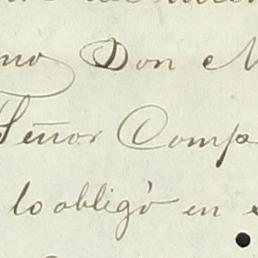 mo Don M
Señor Comp
lo obligó en